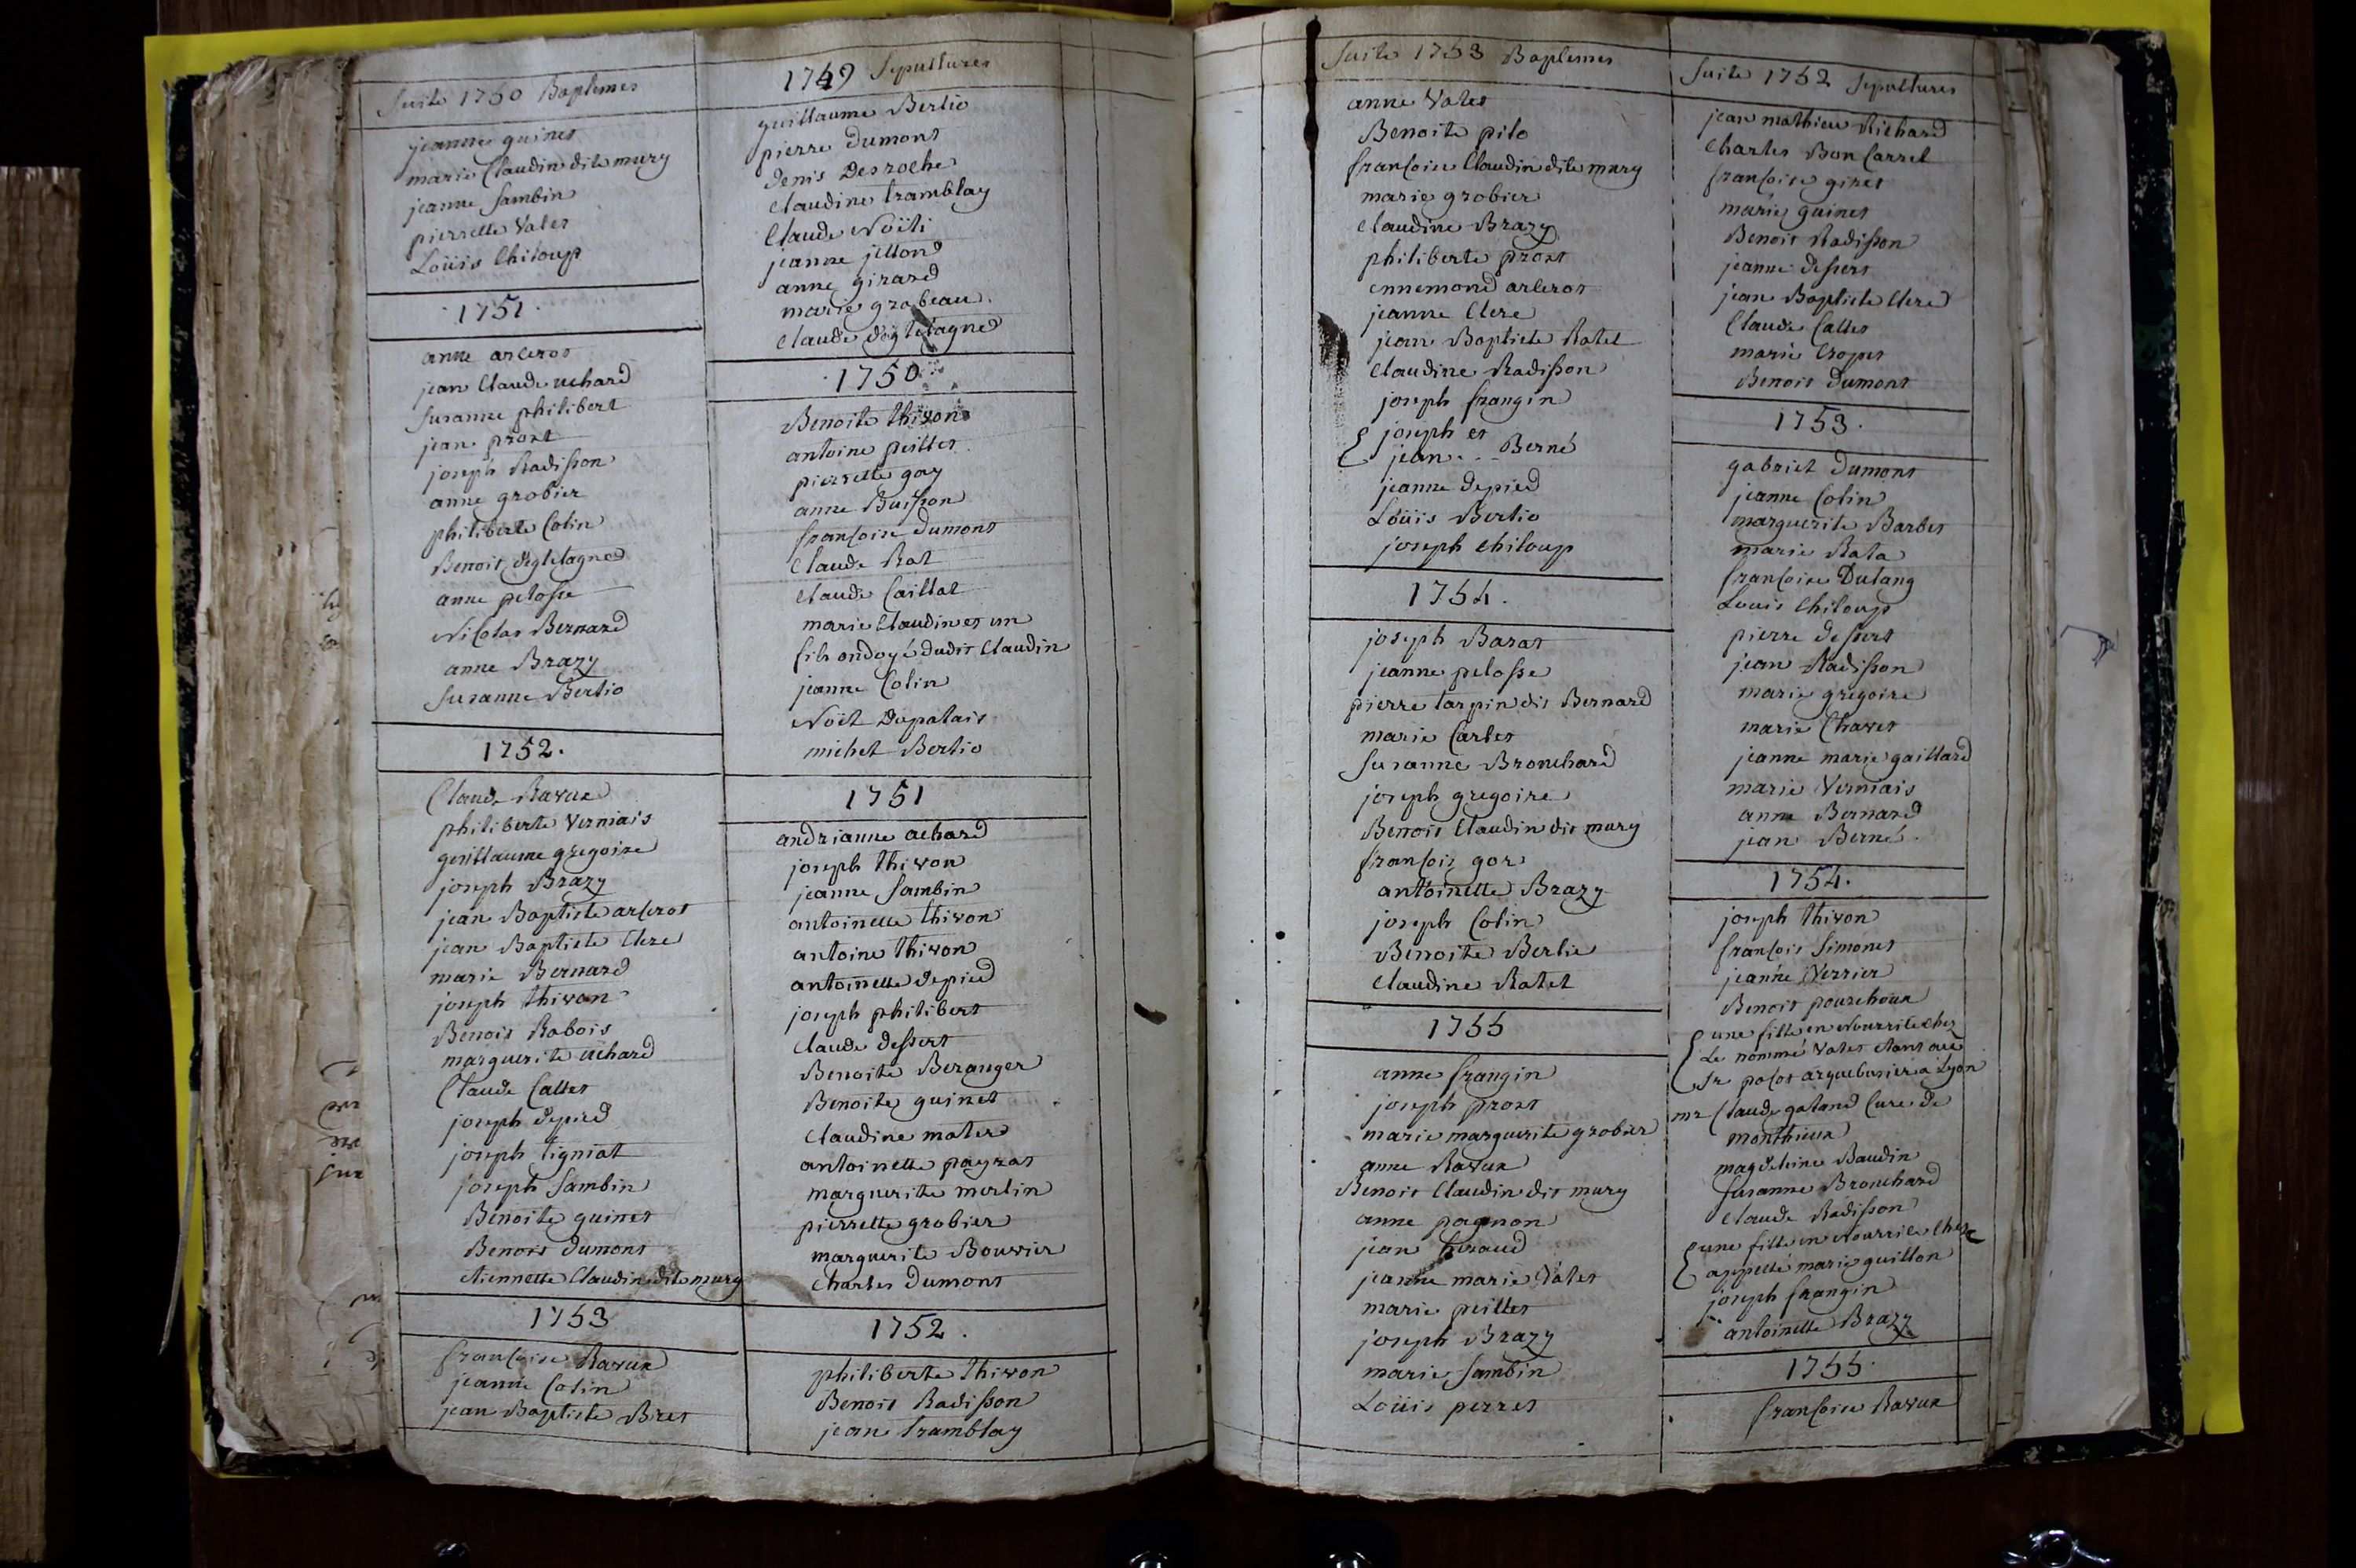 Suite 1750 Baptemes
jeanne guinet
marie Claudin dite mury
jeanne Sambin
pierrette Valet
Loüis Chiloup
1751.
anne arcerot
jean Claude uchard
Susanne philibert
jean prost
joseph Radisson
anne grobier
philiberte Colin
Benoit degletagne
anne pelosse
Nicolas Bernard
anne Brazy
Susanne Bertio
1752.
Claude Ravux
philiberte Verniais
guillaume gregoire
joseph Brazy
jean Baptiste arcerot
jean Baptiste Clere
marie Bernard
joseph thivon
Benoit Rabois
marguerite uchard
Claude Callet
joseph depied
joseph tigniat
joseph Sambin
Benoite guinet
Benoit dumont
etiennette Claudin dite mury
1753
francoise Ravux
jeanne Colin
jean Baptiste Bret
1749 Sepultures
guillaume Bertio
pierre dumont
denis Desroche
Claudine tramblay
Claude Noïti
jeanne jillon
anne girard
marie grobeau
Claude degletagne
1750
Benoite thivon
antoine peillet
pierrette gay
anne Buisson
francoise dumont
Claude Rat
Claude Caillat
marie Claudin et un
fils ondoyé dudit Claudin
jeanne Colin
Noël Dupalais
michel Bertio
1751
andrianne achard
joseph thivon
jeanne Sambin
antoinette thivon
antoine thivon
antoinette depied
joseph philibert
Claude dessert
Benoite Beranger
Benoite guinet
Claudine mater
antoinette payrat
marguerite merlin
pierrette grobier
marguerite Bouvier
Charles dumont
1752.
philiberte thivon
Benoit Radisson
jean tramblay
Suite 1753 Baptemes
anne Valet
Benoite pilo
francoise Claudin dite mury
marie grobier
Claudine Brazy
philiberte prost
ennemond arcerot
jeanne Clere
jean Baptiste Ratel
Claudine Radisson
joseph frangin
joseph et
jean . . Berné
jeanne depied
Loüis Bertio
joseph Chiloup
1754.
joseph Barat
jeanne pelosse
pierre tarpin dit Bernard
marie Carlet
Susanne Brouchard
joseph gregoire
Benoit Claudin dit mury
francois gor
antoinette Brazy
joseph Colin
Benoite Bertie
Claudine Ratel
1755
anne frangin
joseph prost
marie marguerite grobier
anne Ravux
Benoit Claudin dit mury
anne pagnon
jean
jeanne marie Valet
marie peillet
joseph Brazy
marie Sambin
Loüis perret
Suite 1752 Sepultures
jean mathieu Richard
Charles Bon Carrel
francoise giret
marie guinet
Benoit Radisson
jeanne dessert
jean Baptiste Clere
Claude Callet
marie Cropet
Benoit dumont
1753.
gabriel dumont
jeanne Colin
marguerite Barbet
marie Rata
francoise Dutang
Louis Chiloup
pierre dessert
jean Radisson
marie gregoire
marie Chavet
jeanne marie gaillard
marie Verniais
anne Bernard
jean Berné.
1754.
joseph thivon
francois Simonet
jeanne Verrier
Benoit pourchoux
une fille en Nourrite chez
Le nommé Valet etant au
Sr. polot arquebusier à Lyon
mr Claude galand Curé de
monthieux
magdeleine Baudin
Susanne Brouchard
Claude Radisson
une fille en Nourrite Chez
appellé marie guillon
joseph frangin
antoinette Brazy
1755.
francoise Ravux